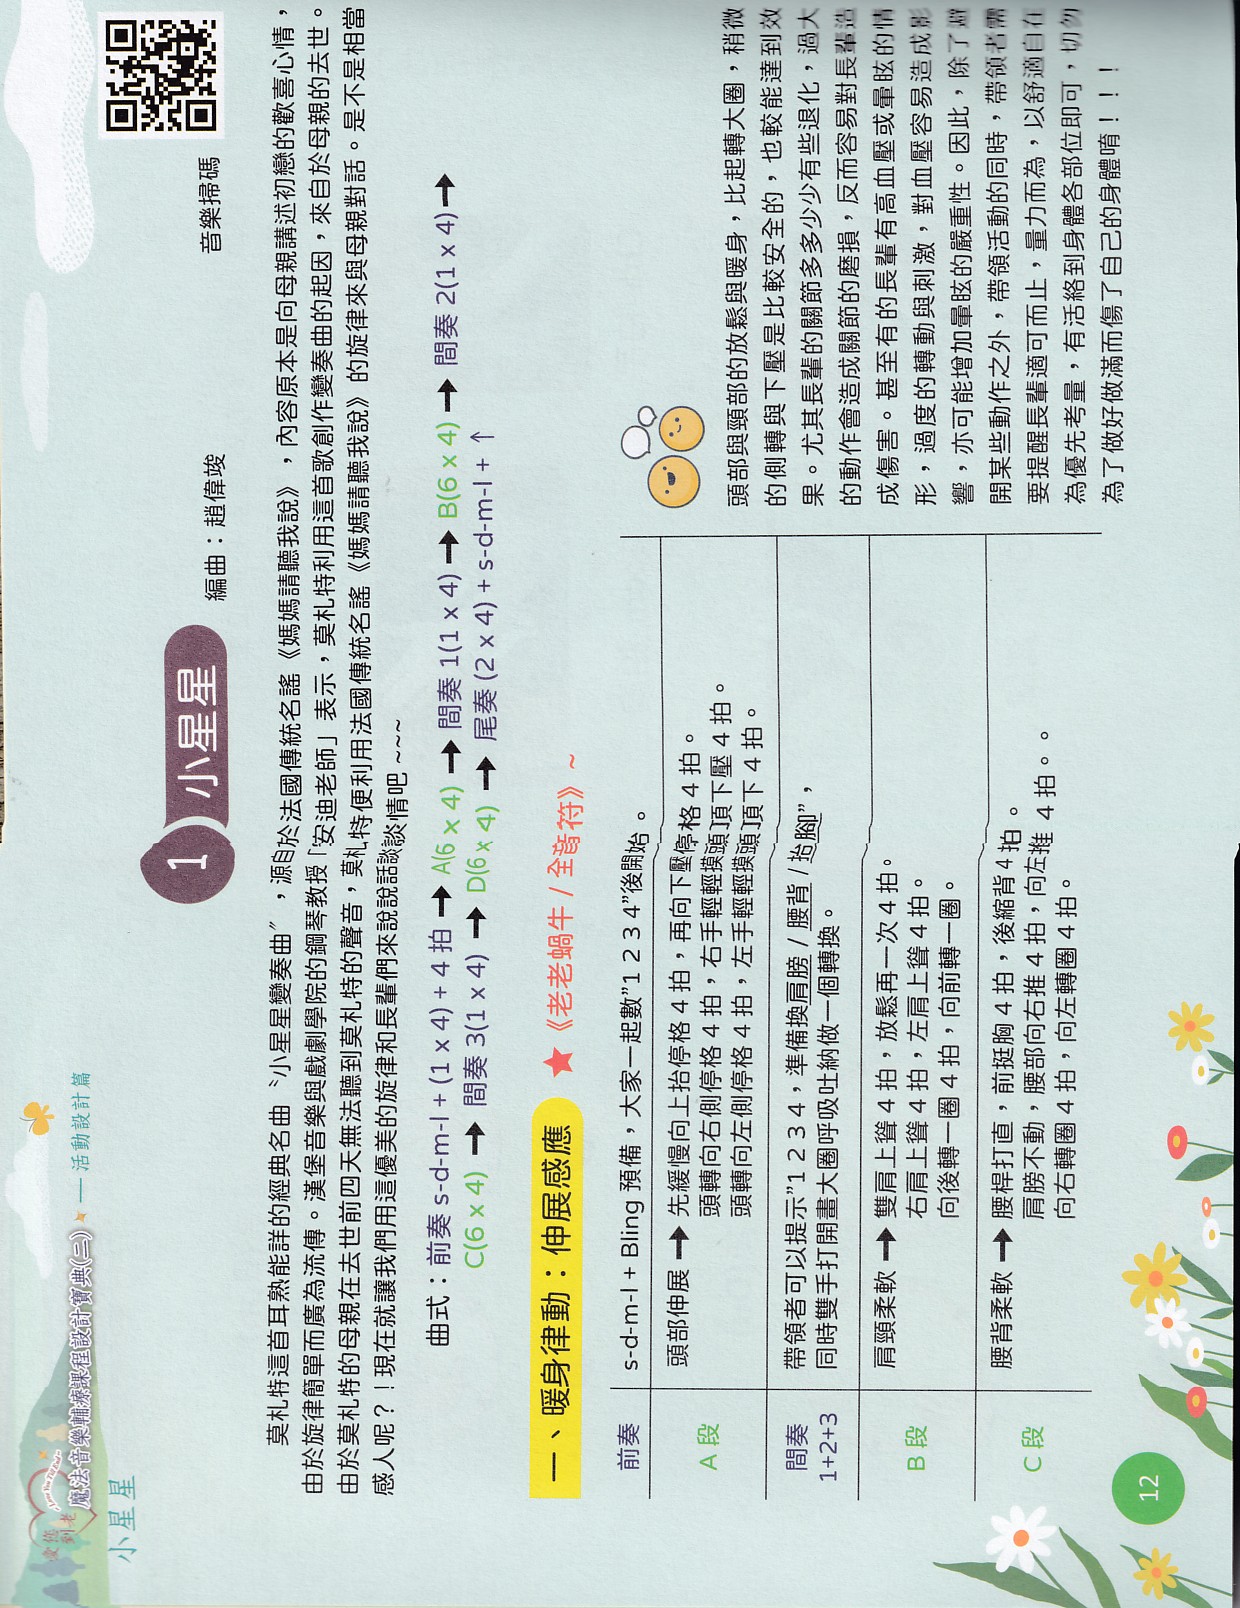 愛您到老
魔法音樂輔療課程設計寶典(二) — 活動設計篇
小星星
1 小星星
編曲：趙偉竣
音樂掃碼
莫札特這首耳熟能詳的經典名曲〝小星星變奏曲〞，源自於法國傳統名謠《媽媽請聽我說》，內容原本是向母親講述初戀的歡喜心情，
由於旋律簡單而廣為流傳。漢堡音樂與戲劇學院的鋼琴教授「安迪老師」表示，莫札特利用這首歌創作變奏曲的起因，來自於母親的去世。
由於莫札特的母親在去世前四天無法聽到莫札特的聲音，莫札特便利用法國傳統名謠《媽媽請聽我說》的旋律來與母親對話。是不是相當
感人呢？！現在就讓我們用這優美的旋律和長輩們來說說話談談情吧 ~~~
曲式：前奏 s-d-m-l + (1 x 4) + 4 拍 ➞ A(6 x 4) ➞ 間奏 1(1 x 4) ➞ B(6 x 4) ➞ 間奏 2(1 x 4) ➞
C(6 x 4) ➞ 間奏 3(1 x 4) ➞ D(6 x 4) ➞ 尾奏 (2 x 4) + s-d-m-l + ↑
一、暖身律動：伸展感應 ★《老老蝸牛 / 全音符》~
前奏 s-d-m-l + Bling 預備，大家一起數”1 2 3 4”後開始。
A 段 頭部伸展 ➞ 先緩慢向上抬停格 4 拍，再向下壓停格 4 拍。
頭轉向右側停格 4 拍，右手輕輕摸頭頂下壓 4 拍。
頭轉向左側停格 4 拍，左手輕輕摸頭頂下 4 拍。
間奏 1+2+3
帶領者可以提示”1 2 3 4，準備換肩膀 / 腰背 / 抬腳”，
同時雙手打開畫大圈呼吸吐納做一個轉換。
B 段 肩頸柔軟 ➞ 雙肩上聳 4 拍，放鬆再一次 4 拍。
右肩上聳 4 拍，左肩上聳 4 拍。
向後轉一圈 4 拍，向前轉一圈。
C 段 腰背柔軟 ➞ 腰桿打直，前挺胸 4 拍，後縮背 4 拍。
肩膀不動，腰部向右推 4 拍，向左推 4 拍。。
向右轉圈 4 拍，向左轉圈 4 拍。
頭部與頸部的放鬆與暖身，比起轉大圈，稍微
的側轉與下壓是比較安全的，也較能達到效
果。尤其長輩的關節多多少少有些退化，過大
的動作會造成關節的磨損，反而容易對長輩造
成傷害。甚至有的長輩有高血壓或暈眩的情
形，過度的轉動與刺激，對血壓容易造成影
響，亦可能增加暈眩的嚴重性。因此，除了避
開某些動作之外，帶領活動的同時，帶領者需
要提醒長輩適可而止，量力而為，以舒適自在
為優先考量，有活絡到身體各部位即可，切勿
為了做好做滿而傷了自己的身體唷！！！
12